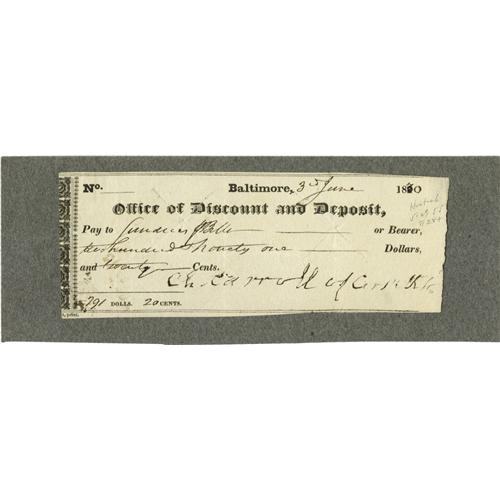 No. Baltimore, 3d June 1830
Office of Discount and Deposit,
Pay to Sundries or Bearer,
hundred Ninety one Dollars,
and twenty Cents.
Ch. Carroll of Carrollton
291 DOLLS. 20 CENTS.
print.